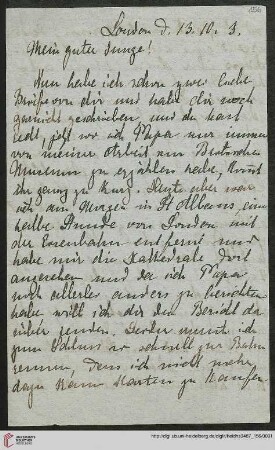 156
London d. 13.10.3.
Mein guter Junge!
Nun habe ich schon zwei liebe
Briefe von dir und habe dir noch
garnicht geschrieben, und du hast
recht, jetzt wo ich Papa nur immer
von meiner Arbeit am Britischen
Museum zu erzählen habe, kommst
du genug zu kurz. Heute aber war
ich am Morgen in St Albans, eine
halbe Stunde von London mit
der Eisenbahn entfernt und
habe mir die Kathedrale dort
angesehen und da ich Papa
noch allerlei anders zu berichten
habe will ich dir den Bericht da
rüber senden. Leider musste ich
zum Schluss so schnell zur Bahn
rennen, dass ich nicht mehr
dazu kam Karten zu kaufen
http://digi.ub.uni-heidelberg.de/diglit/heidhs3487_156/0001
UNIVERSITÄTS-
BIBLIOTHEK
HEIDELBERG